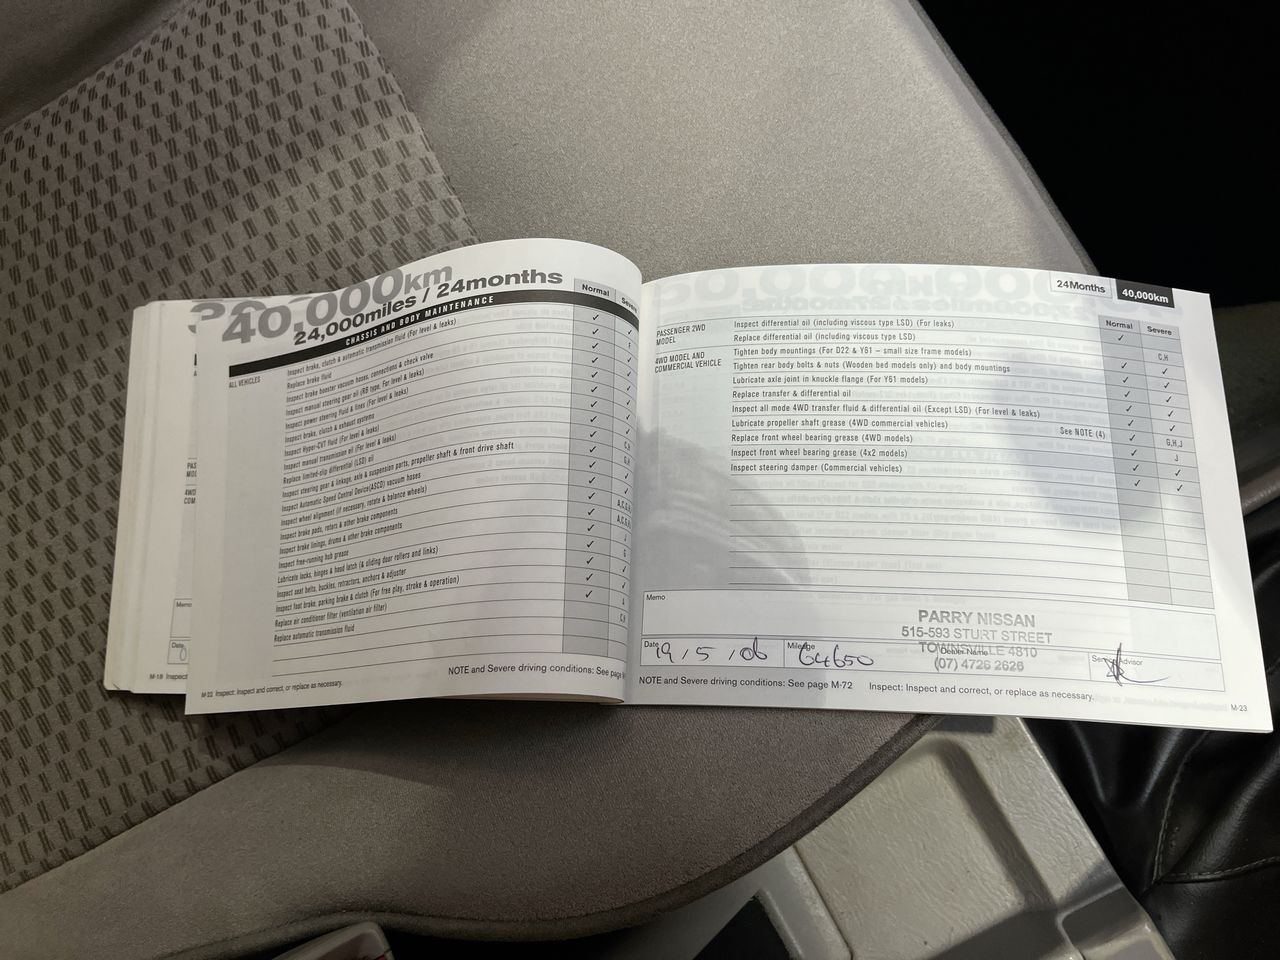 40,000km
24,000miles / 24months
CHASSIS AND BODY MAINTENANCE
Normal
ALL VEHICLES
Inspect brake, clutch & automatic transmission fluid (For level & leaks)
Replace brake fluid
Inspect brake booster vacuum hoses, connections & check valve
Inspect manual steering gear oil (RB type, For level & leaks)
Inspect power steering fluid & lines (For level & leaks)
Inspect brake, clutch & exhaust systems
Inspect Hyper-CVT fluid (For level & leaks)
Inspect manual transmission oil (For level & leaks)
Replace limited-slip differential (LSD) oil
Inspect steering gear & linkage, axle & suspension parts, propeller shaft & front drive shaft
Inspect Automatic Speed Control Device(ASCD) vacuum hoses
Inspect wheel alignment (if necessary, rotate & balance wheels)
Inspect brake pads, rotors & other brake components
Inspect brake linings, drums & other brake components
Inspect free-running hub grease
Lubricate locks, hinges & hood latch (& sliding door rollers and links)
Inspect seat belts, buckles, retractors, anchors & adjuster
Inspect foot brake, parking brake & clutch (For free play, stroke & operation)
Replace air conditioner filter (ventilation air filter)
Replace automatic transmission fluid
NOTE and Severe driving conditions: See page
M-22 Inspect: Inspect and correct, or replace as necessary.
Memo
Date
M-19 Inspect
24Months 40,000km
Normal Severe
PASSENGER 2WD MODEL
Inspect differential oil (including viscous type LSD) (For leaks) ✓
Replace differential oil (including viscous type LSD) C,H
4WD MODEL AND COMMERCIAL VEHICLE
Tighten body mountings (For D22 & Y61 – small size frame models) ✓ ✓
Tighten rear body bolts & nuts (Wooden bed models only) and body mountings ✓ ✓
Lubricate axle joint in knuckle flange (For Y61 models) ✓ ✓
Replace transfer & differential oil ✓ ✓
Inspect all mode 4WD transfer fluid & differential oil (Except LSD) (For level & leaks) ✓ ✓
Lubricate propeller shaft grease (4WD commercial vehicles) See NOTE (4) ✓ G,H,J
Replace front wheel bearing grease (4WD models) J
Inspect front wheel bearing grease (4x2 models) ✓ ✓
Inspect steering damper (Commercial vehicles) ✓ ✓
Memo
PARRY NISSAN
515-593 STURT STREET
TOWNSVILLE 4810
(07) 4726 2626
Date 19/5/06 Mileage 64650 Dealer Name Service Advisor
NOTE and Severe driving conditions: See page M-72 Inspect: Inspect and correct, or replace as necessary.
M-23